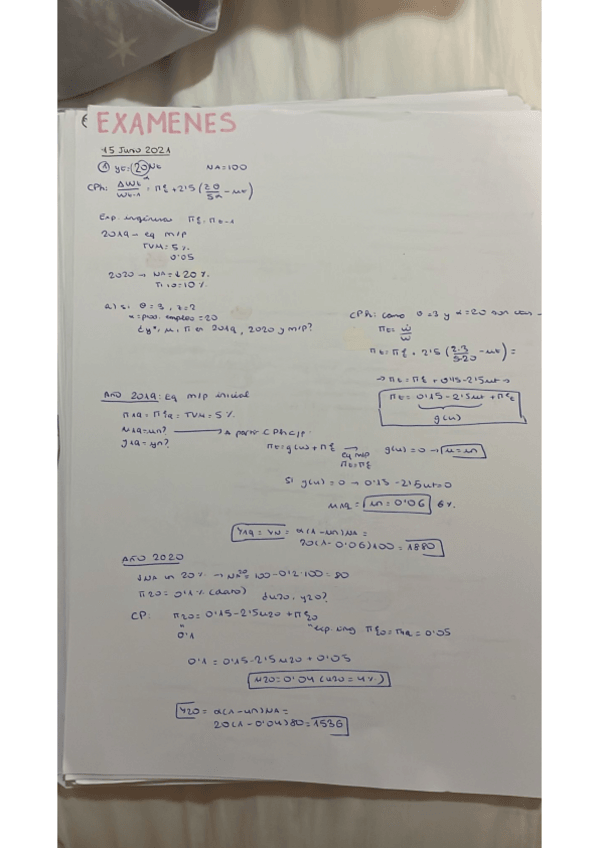 EXAMENES
15 Junio 2021
① yt = 20 Nt NA=100
CPh: ΔWt/Wt-1 = πet + 2'5 (zθ/5α - ut)
Exp. ingenuas πet = πt-1
2019 → eq m/p
TVM = 5%
0'05
2020 → NA = ↓20%
π20 = 10%
a) si θ=3, z=2
α = prod. empleo = 20
¿y*, u, π en 2019, 2020 y m/p?
CPh: como θ=3 y α=20 son
πt = ẇ/w
πt = πet + 2'5 (2·3/5·20 - ut) =
→ πt = πet + 0'15 - 2'5ut →
πt = 0'15 - 2'5ut + πet
g(u)
AÑO 2019: Eq m/p inicial
π19 = πe19 = TVM = 5%
u19 = un? → A partir CPh c/p:
y19 = yn?
πt = g(u) + πet → eq m/p πt = πet g(u) = 0 → u = un
Si g(u) = 0 → 0'15 - 2'5ut = 0
u19 = un = 0'06 6%.
Y19 = YN = α(1-un)NA =
20(1-0'06)100 = 1880
AÑO 2020
↓NA in 20% → NA20 = 100-0'2·100 = 80
π20 = 0'1% (dato) ¿u20, y20?
CP: π20 = 0'15 - 2'5u20 + πe20
0'1 "exp. ing πe20 = π19 = 0'05
0'1 = 0'15 - 2'5u20 + 0'05
u20 = 0'04 (u20 = 4%)
Y20 = α(1-un)NA =
20(1-0'04)80 = 1536